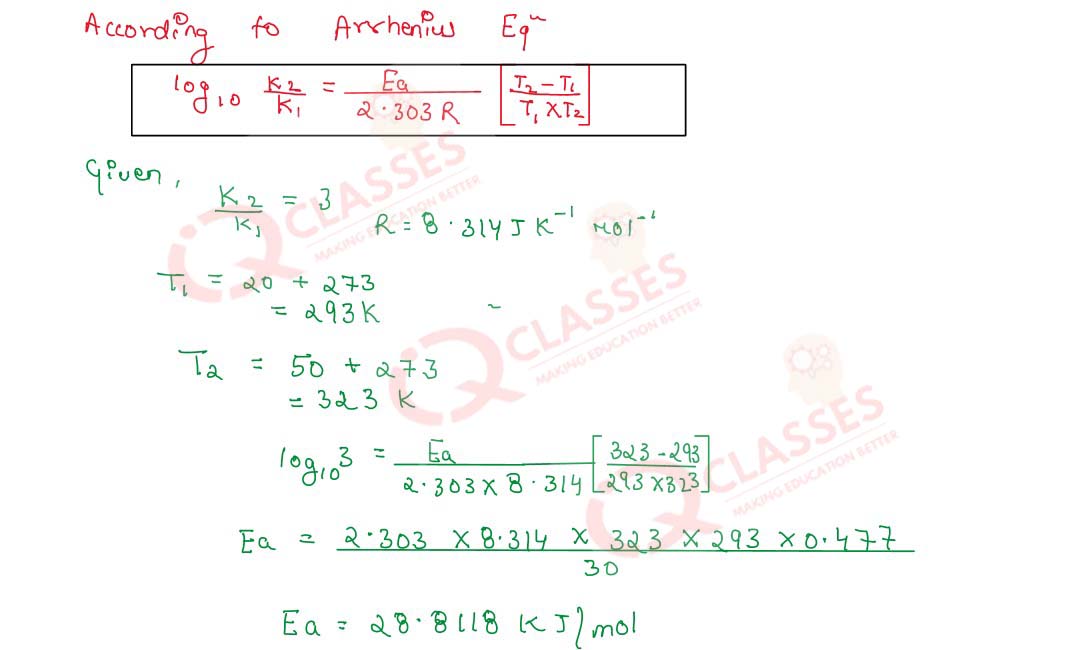 According to Arrhenius Eqⁿ
log₁₀ K2/K1 = Ea/2.303 R [T2 – T1/T1 × T2]
Given,
K2/K1 = 3
R = 8.314 J K⁻¹ mol⁻¹
T1 = 20 + 273
= 293 K
T2 = 50 + 273
= 323 K
log₁₀ 3 = Ea/2.303 × 8.314 [323 – 293/293 × 323]
Ea = 2.303 × 8.314 × 323 × 293 × 0.477/30
Ea = 28.8118 KJ/mol
IQ CLASSES
MAKING EDUCATION BETTER
IQ CLASSES
MAKING EDUCATION BETTER
IQ CLASSES
MAKING EDUCATION BETTER